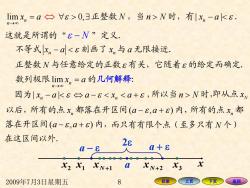 lim x_n = a ⇔ ∀ε>0, ∃正整数 N, 当 n > N 时, 有| x_n − a |< ε.
n→∞
这就是所谓的 “ε − N” 定义.
不等式|x_n − a|< ε 刻画了 x_n 与 a 无限接近.
正整数 N 与任意给定的正数 ε 有关, 它随着 ε 的给定而确定.
数列极限 lim x_n = a 的几何解释:
n→∞
因为| x_n − a |< ε ⇔ a − ε < x_n < a + ε , 所以当 n > N 时,即从点 x_N
以后, 所有的点 x_n 都落在开区间 (a − ε, a + ε) 内, 所有的点 x_n 都
落在开区间 (a − ε, a + ε) 内, 而只有有限个点 (至多只有 N 个)
在这区间以外.
a − ε 2ε a + ε
x_2 x_1 x_{N+1} a x_{N+2} x_3 x
2009年7月3日星期五 8